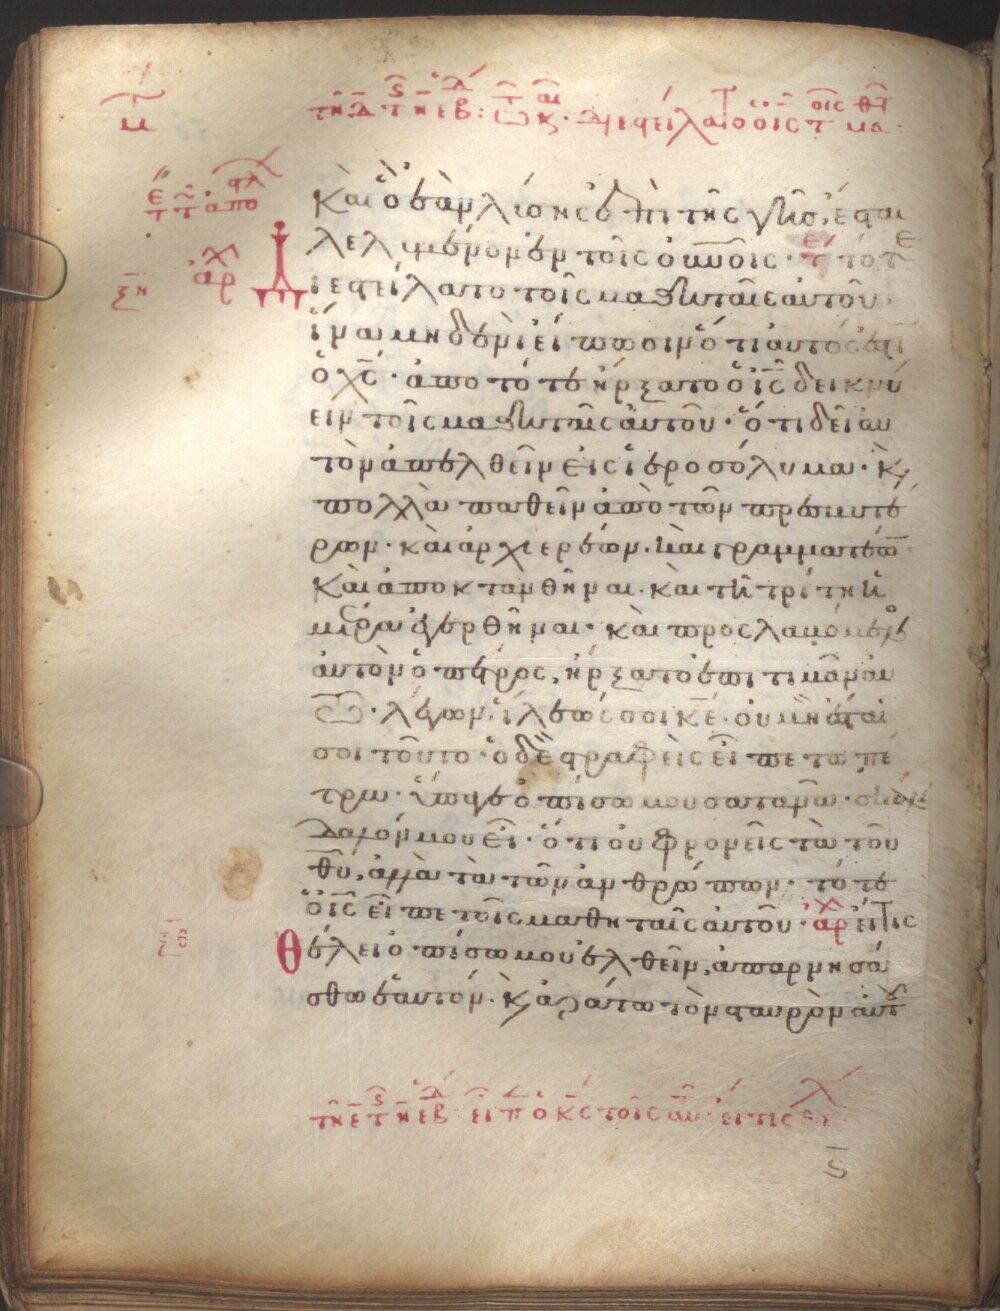 τῇ Δ τῆς ἑβ: τῷ κ. διεστείλατο ὁ ις τ μα
καὶ ὃ ἐὰν λύσης ἐπὶ τῆς γῆς, ἔσται
λελυμένον ἐν τοῖς οὐνοῖς · τ τότε
διεστείλατο τοῖς μαθηταῖς αὐτοῦ
ἵνα μηδενὶ εἴπωσιν ὅτι αὐτός ἐστιν
ὁ χς · ἀπο τότε ἤρξατο ὁ ις δεικνύ
ειν τοῖς μαθηταῖς αὐτοῦ · ὅτι δεῖ αὐ
τὸν ἀπελθεῖν εἰς ἱεροσόλυμα · κ
πολλὰ παθεῖν ἀπὸ τῶν πρεσβυτέ
ρων · καὶ ἀρχιερέων · καὶ γραμματέων
καὶ ἀποκτανθῆναι · καὶ τῆ τρίτη ἡ
μέρα ἐγερθῆναι · καὶ προσλαβόμενος
αὐτὸν ὁ πέτρος, ἤρξατο ἐπιτιμᾶν αὐ
τῶ · λέγων, ἵλεώς σοι κε · οὐ μὴ ἔσται
σοι τοῦτο · ὁ δὲ στραφεὶς εἶπε τῶ πέ
τρω · ὕπαγε ὀπίσω μου σατανᾶ · σκάν
δαλόν μου εἶ · ὅτι οὐ φρονεῖς τὰ τοῦ
θυ, ἀλλὰ τὰ τῶν ἀνθρώπων · τότε
ὁ ις εἶπε τοῖς μαθηταῖς αὐτοῦ · ἀρ εἴ τις
θέλει ὀπίσω μου ἐλθεῖν, ἀπαρνησά
σθω ἑαυτόν · κ ἀράτω τὸν σταυρὸν αὐτ
τῇ ε τῆς ἑβ εἶπ ὁ κς τοῖς · εἴ τις θε